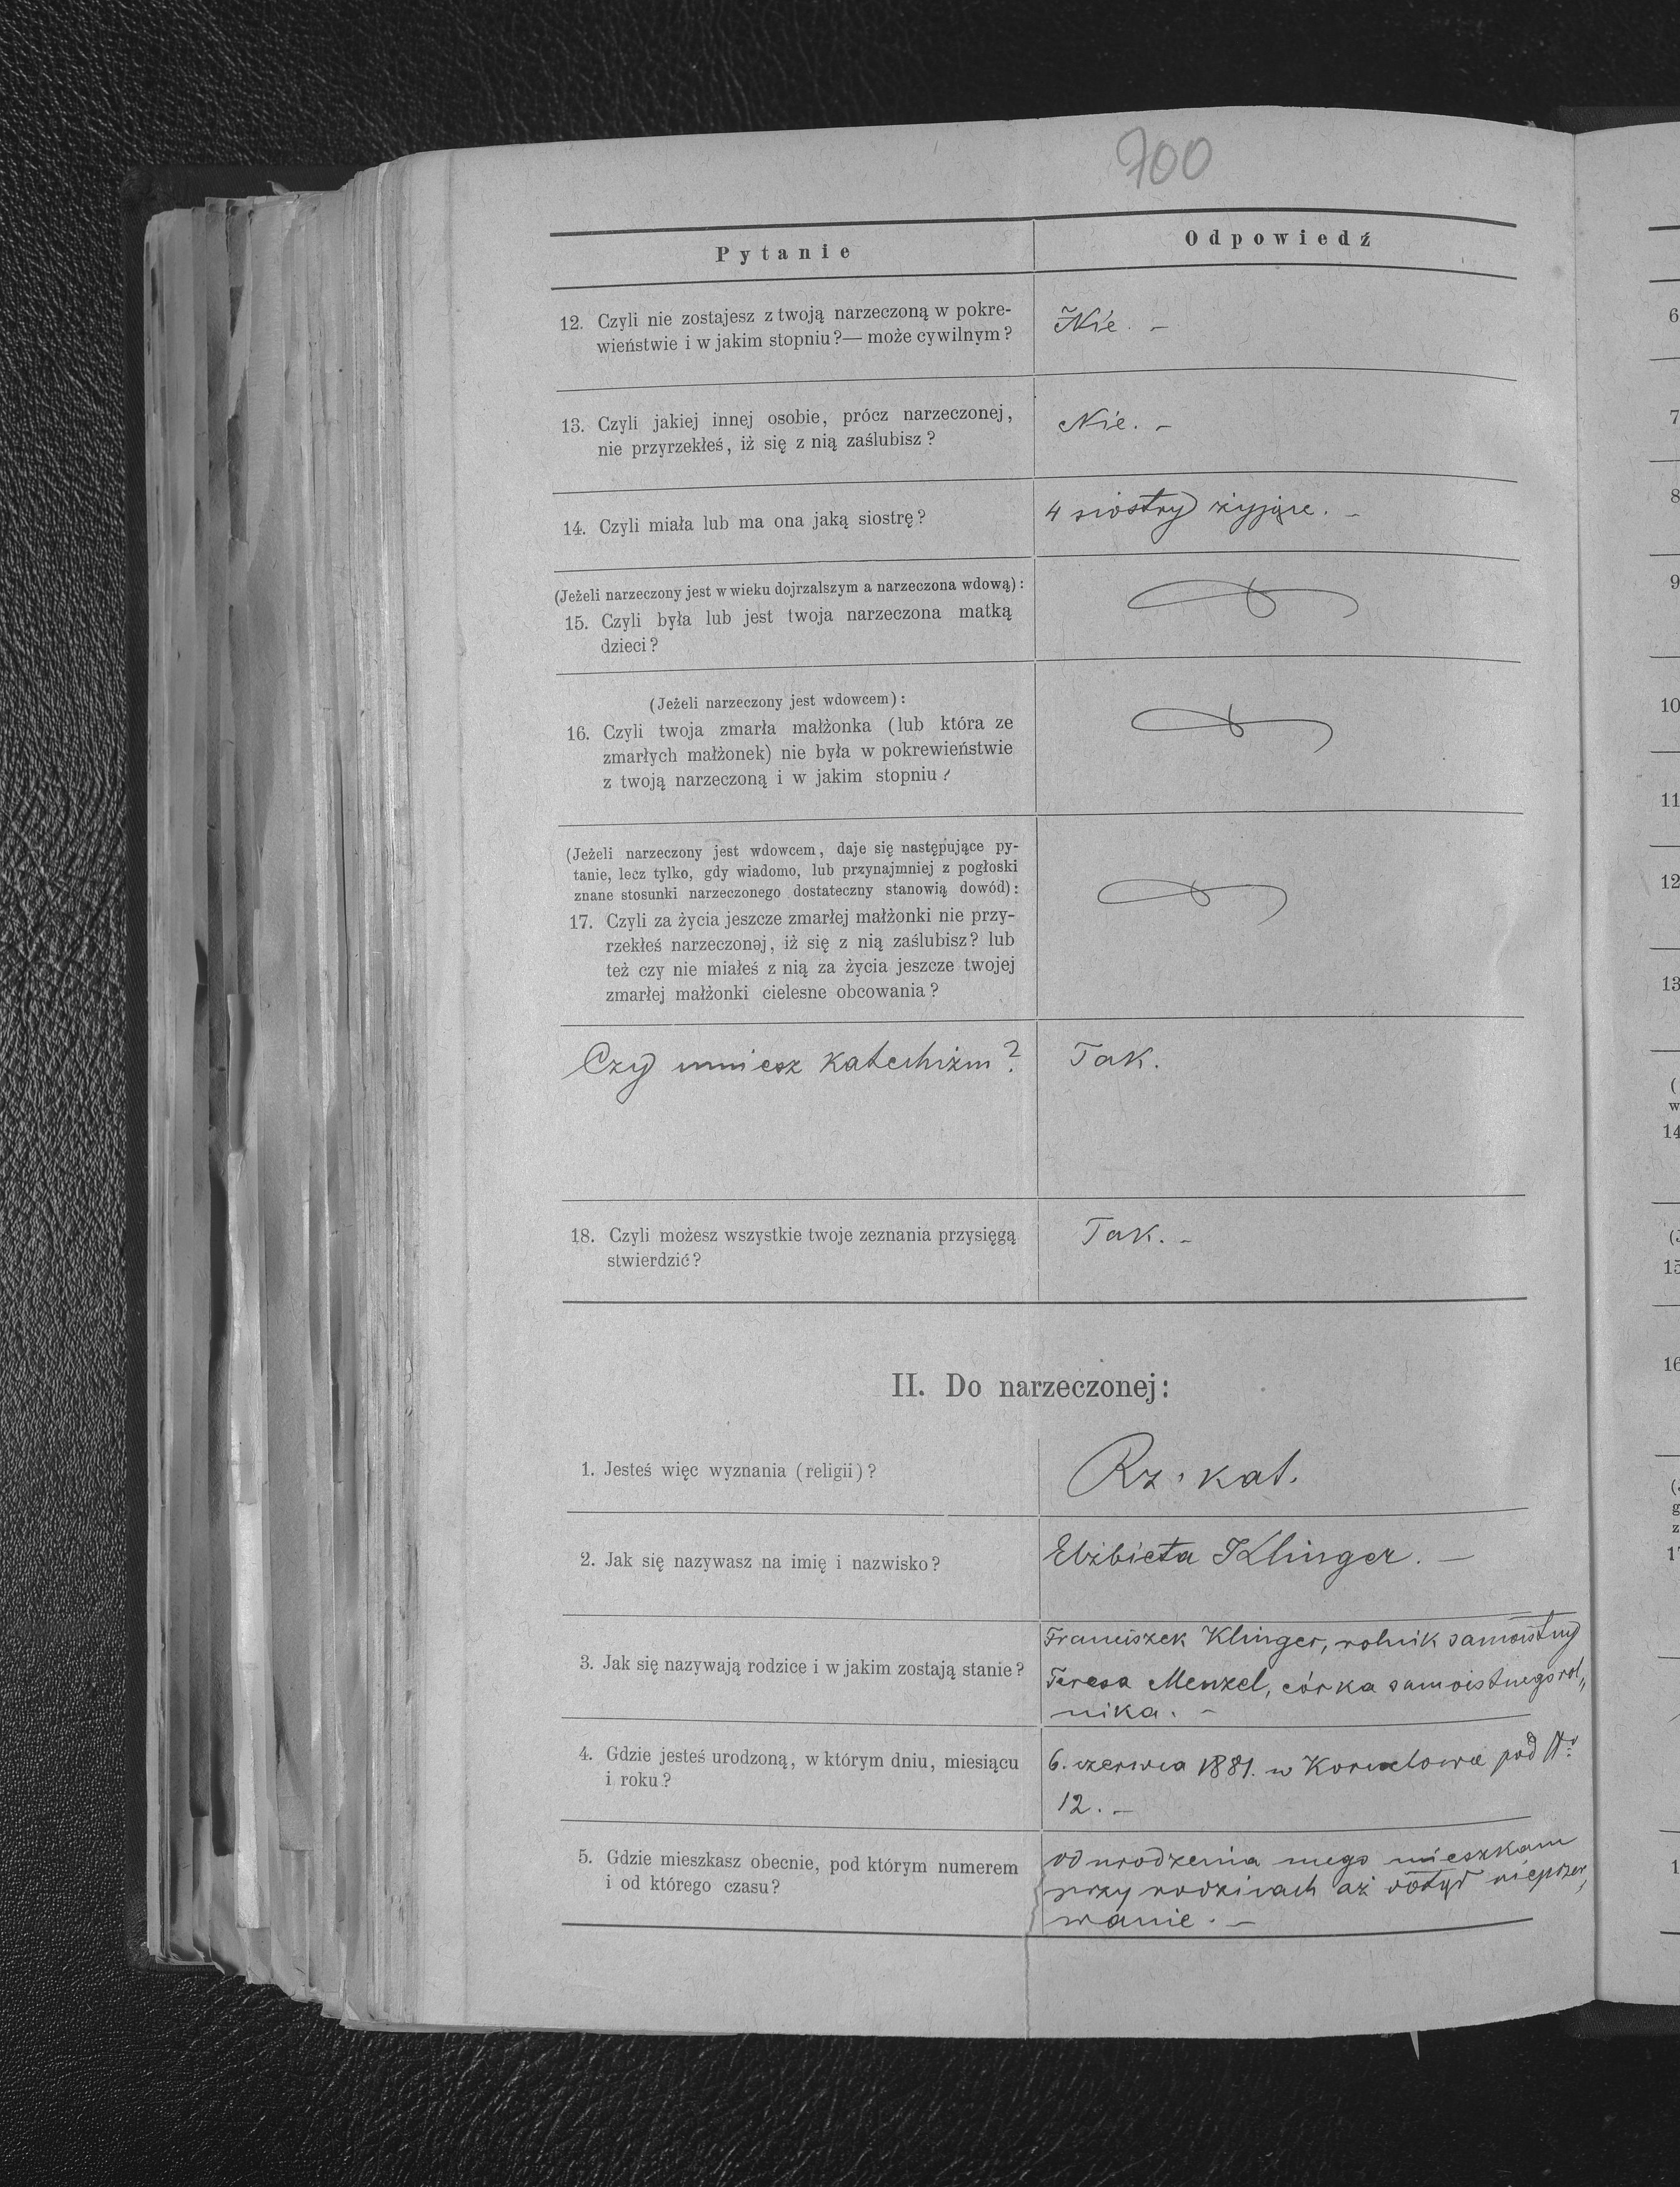 700
Pytanie
Odpowiedź
12. Czyli nie zostajesz z twoją narzeczoną w pokre-
wieństwie i w jakim stopniu?— może cywilnym?
Nie. –
13. Czyli jakiej innej osobie, prócz narzeczonej,
nie przyrzekłeś, iż się z nią zaślubisz?
Nie. –
14. Czyli miała lub ma ona jaką siostrę?
4 siostry żyjące. –
(Jeżeli narzeczony jest w wieku dojrzalszym a narzeczona wdową):
15. Czyli była lub jest twoja narzeczona matką
dzieci?
(Jeżeli narzeczony jest wdowcem):
16. Czyli twoja zmarła małżonka (lub która ze
zmarłych małżonek) nie była w pokrewieństwie
z twoją narzeczoną i w jakim stopniu?
(Jeżeli narzeczony jest wdowcem, daje się następujące py-
tanie, lecz tylko, gdy wiadomo, lub przynajmniej z pogłoski
znane stosunki narzeczonego dostateczny stanowią dowód):
17. Czyli za życia jeszcze zmarłej małżonki nie przy-
rzekłeś narzeczonej, iż się z nią zaślubisz? lub
też czy nie miałeś z nią za życia jeszcze twojej
zmarłej małżonki cielesne obcowania?
Czy umiesz katechizm?
Tak.
18. Czyli możesz wszystkie twoje zeznania przysięgą
stwierdzić?
Tak. –
II. Do narzeczonej:
1. Jesteś więc wyznania (religii)?
Rz. kat.
2. Jak się nazywasz na imię i nazwisko?
Elżbieta Klinger. –
3. Jak się nazywają rodzice i w jakim zostają stanie?
Franciszek Klinger, rolnik samoistny
Teresa Menzel, córka samoistnego rol„
nika. –
4. Gdzie jesteś urodzoną, w którym dniu, miesiącu
i roku?
6. czerwca 1881. w pod No
12. –
5. Gdzie mieszkasz obecnie, pod którym numerem
i od którego czasu?
od urodzenia mego mieszkam
przy rodzicach aż dotąd nieprzer„
wanie. –
6
7
8
9
10
11
12
13
(
w
14
(J
15
16
(J
g
z
17
1